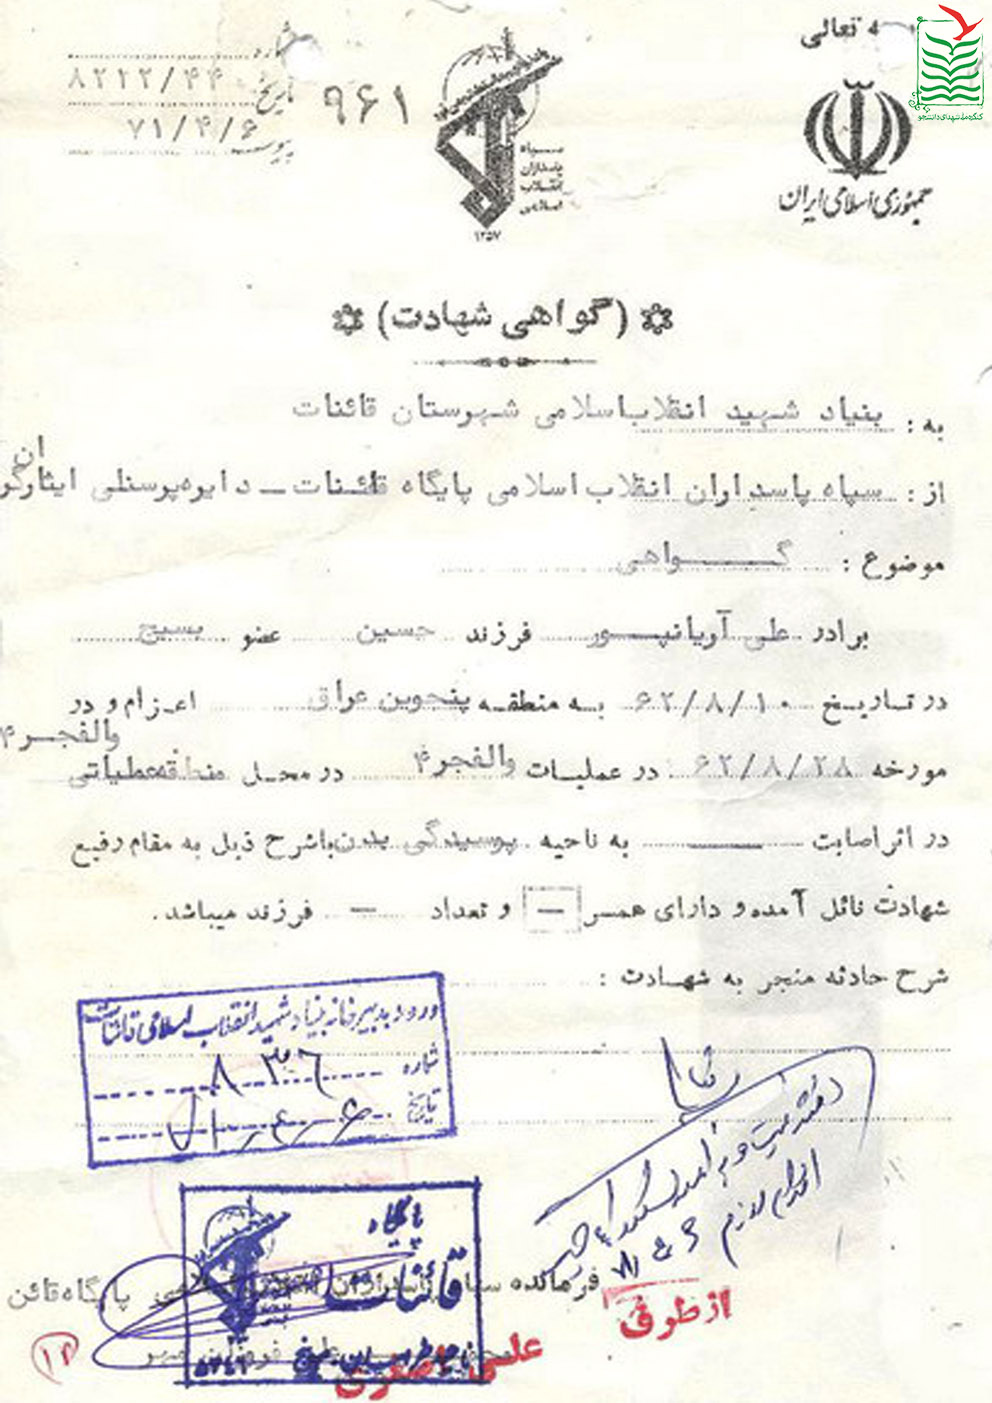 تعالی
کنگره ملی شهدای دانشجو
جمهوری اسلامی ایران
سپاه
پاسداران
انقلاب
اسلامی
۱۳۵۷
۹۶۱
شماره
تاریخ ۸۲۱۲/۴۴
پیوست ۷۱/۴/۶
(گواهی شهادت)
به : بنیاد شهید انقلاب اسلامی شهرستان قائنات
از : سپاه پاسداران انقلاب اسلامی پایگاه قائنات – دایره پرسنلی ایثارگران
موضوع : گواهی
برادر علی آریانپور فرزند حسین عضو بسیج
در تاریخ ۶۲/۸/۱۰ به منطقه پنجوین عراق اعزام و در
مورخه ۶۲/۸/۲۸ در عملیات والفجر۴ در محل منطقه عملیاتی والفجر۴
در اثر اصابت — به ناحیه پوسیدگی بدن باشرح ذیل به مقام رفیع
شهادت نائل آمده و دارای همسر — و تعداد — فرزند میباشد.
شرح حادثه منجر به شهادت :
ورود بدبیرخانه بنیاد شهید انقلاب اسلامی قائنات
شماره ۸۳۰۶
تاریخ ۷۱-۴-۶
اقدام لازم
فرمانده سپاه پاسداران انقلاب اسلامی پایگاه قائن
پایگاه
قائنات
از طرف
علی اصغری
۱۲